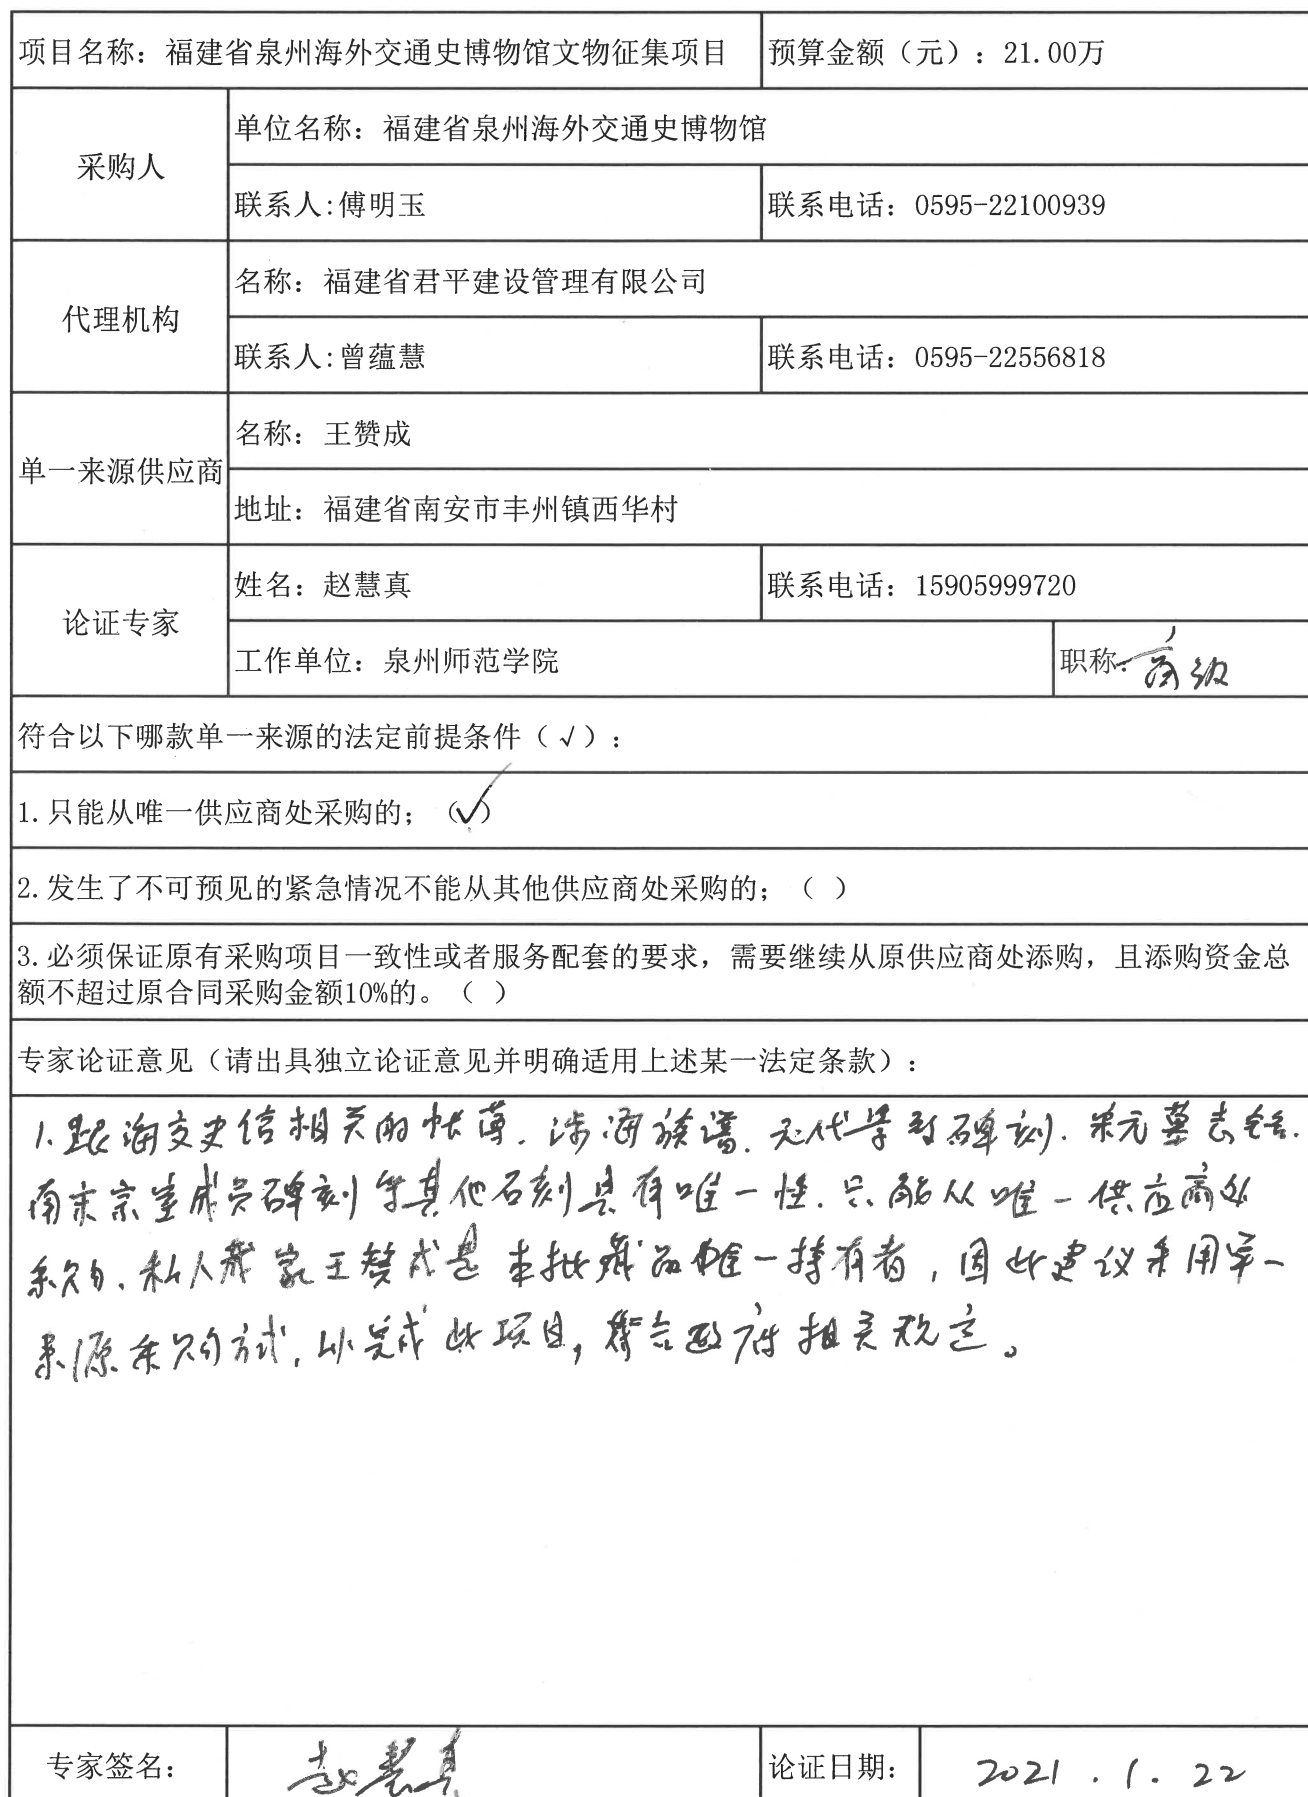 项目名称：福建省泉州海外交通史博物馆文物征集项目 预算金额（元）：21.00万
采购人
单位名称：福建省泉州海外交通史博物馆
联系人:傅明玉 联系电话：0595-22100939
代理机构
名称：福建省君平建设管理有限公司
联系人:曾蕴慧 联系电话：0595-22556818
单一来源供应商
名称：王赞成
地址：福建省南安市丰州镇西华村
论证专家
姓名：赵慧真 联系电话：15905999720
工作单位：泉州师范学院 职称：高级
符合以下哪款单一来源的法定前提条件（√）：
1.只能从唯一供应商处采购的；（√）
2.发生了不可预见的紧急情况不能从其他供应商处采购的；（ ）
3.必须保证原有采购项目一致性或者服务配套的要求，需要继续从原供应商处添购，且添购资金总
额不超过原合同采购金额10%的。（ ）
专家论证意见（请出具独立论证意见并明确适用上述某一法定条款）：
1.跟海交史信相关的帐薄.涉海族谱.元代 碑刻.宋元墓志铭.
南宋宗室成员碑刻等其他石刻具有唯一性.只能从唯一供应商处
采购、私人藏家王赞成是本批藏品唯一持有者，因此建议采用单一
来源采购方式,以完成此项目,符合政府相关规定。
专家签名： 赵慧真 论证日期： 2021.1.22